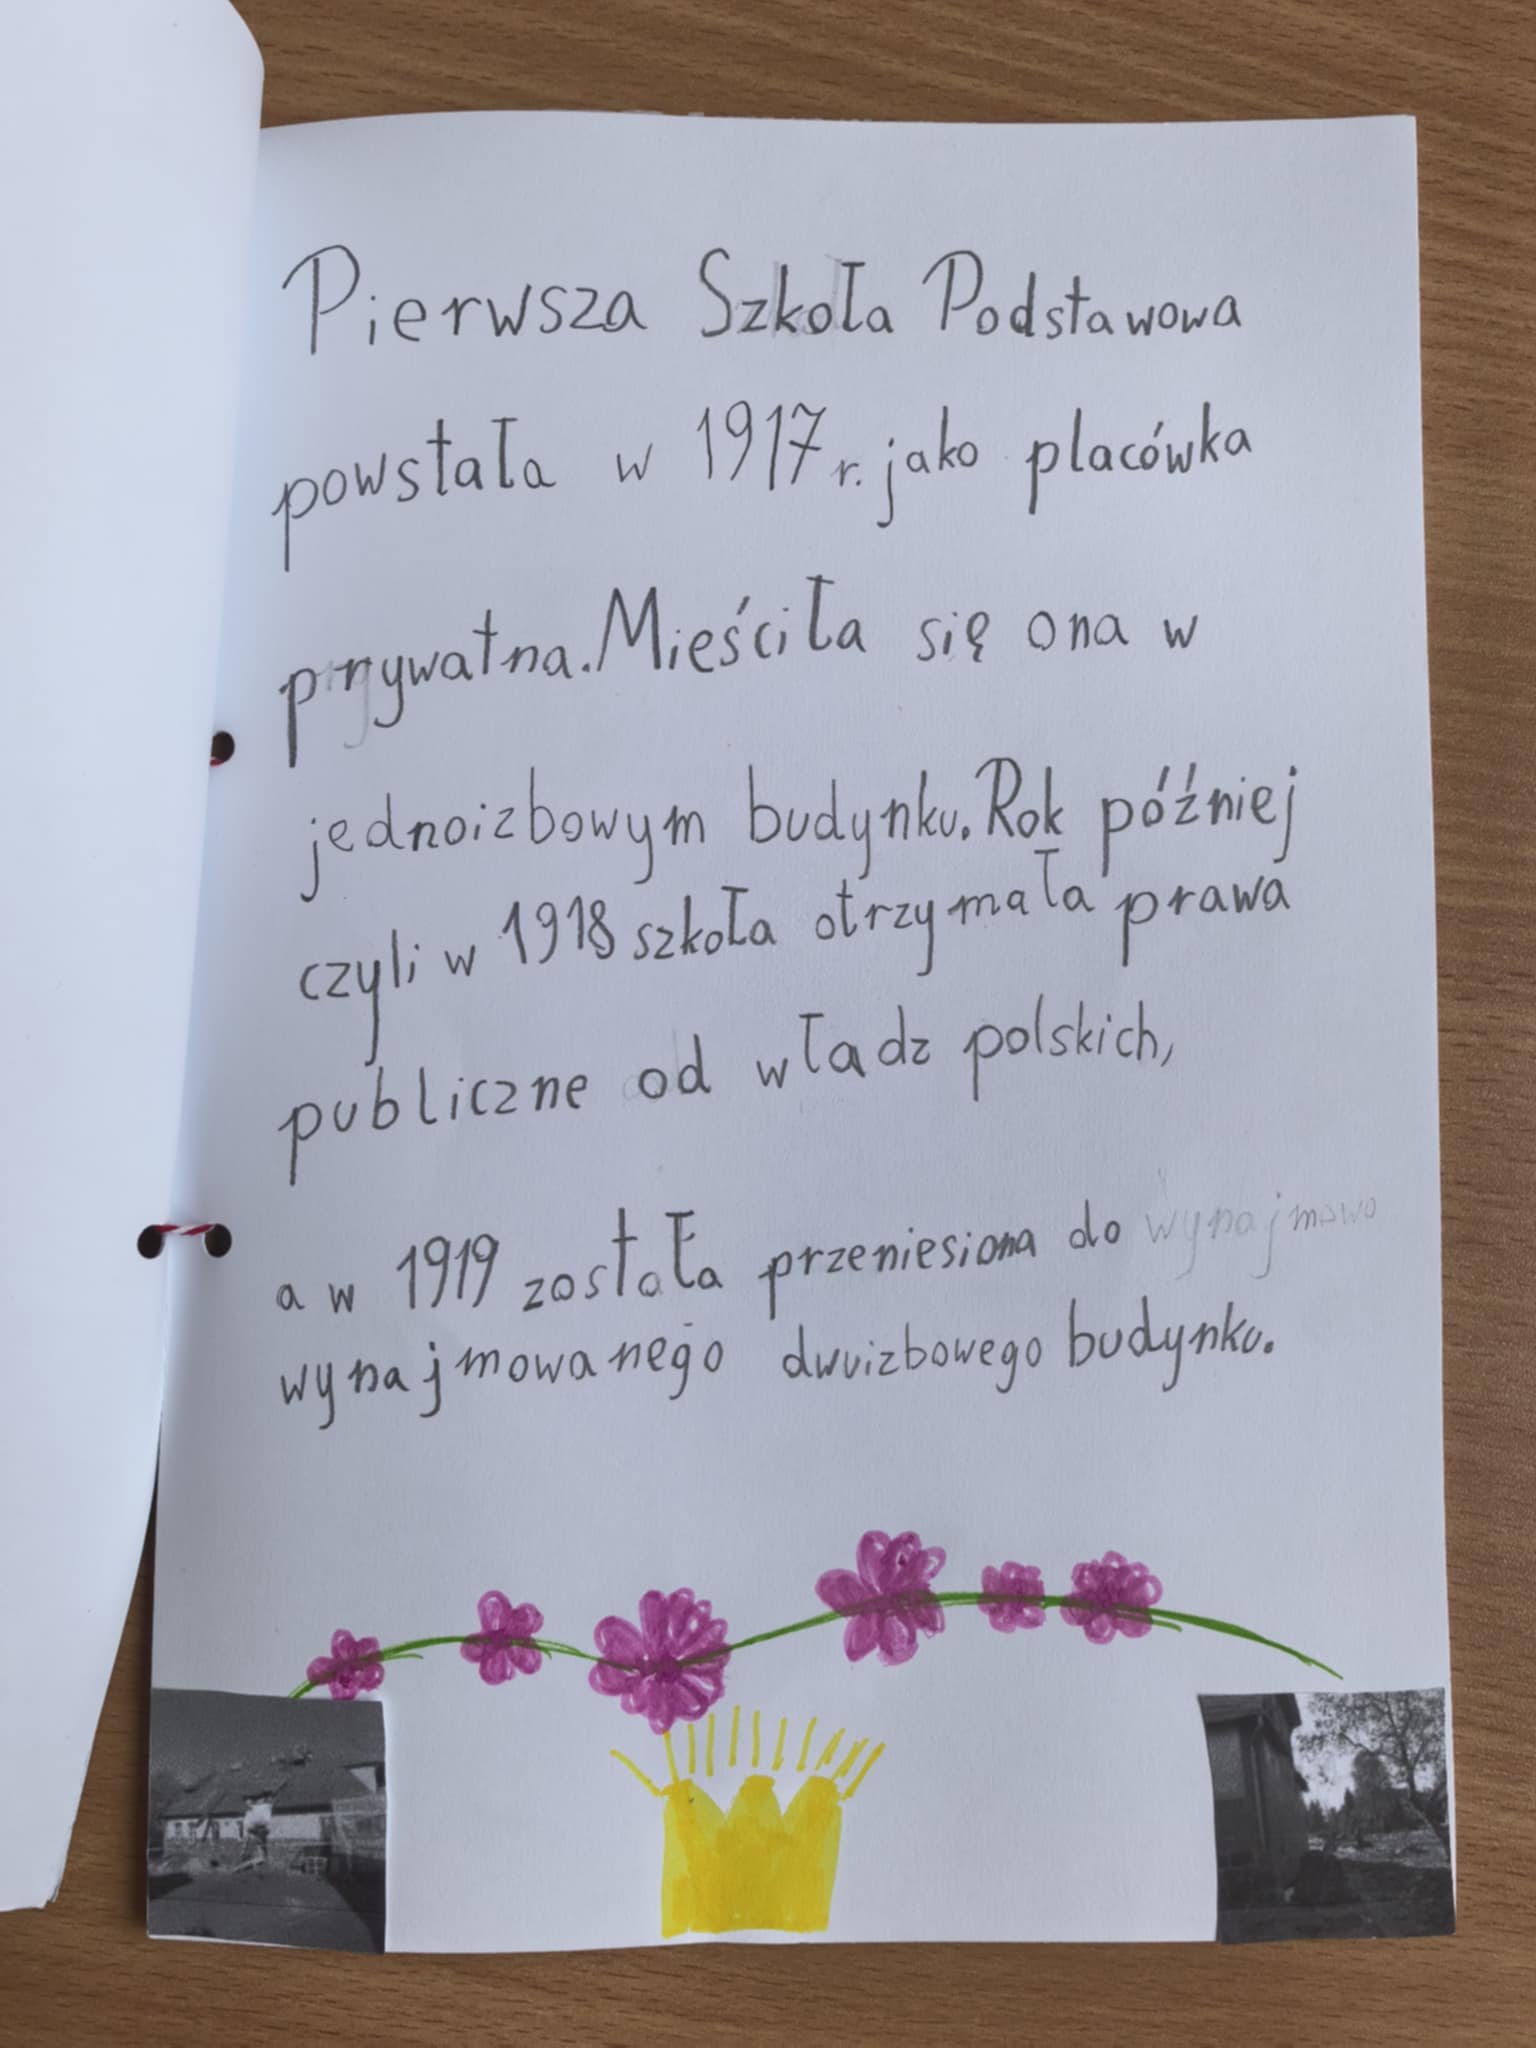 Pierwsza Szkoła Podstawowa
powstała w 1917 r. jako placówka
prywatna. Mieściła się ona w
jednoizbowym budynku. Rok później
czyli w 1918 szkoła otrzymała prawa
publiczne od władz polskich,
a w 1919 została przeniesiona do wynajmowo
wynajmowanego dwuizbowego budynku.